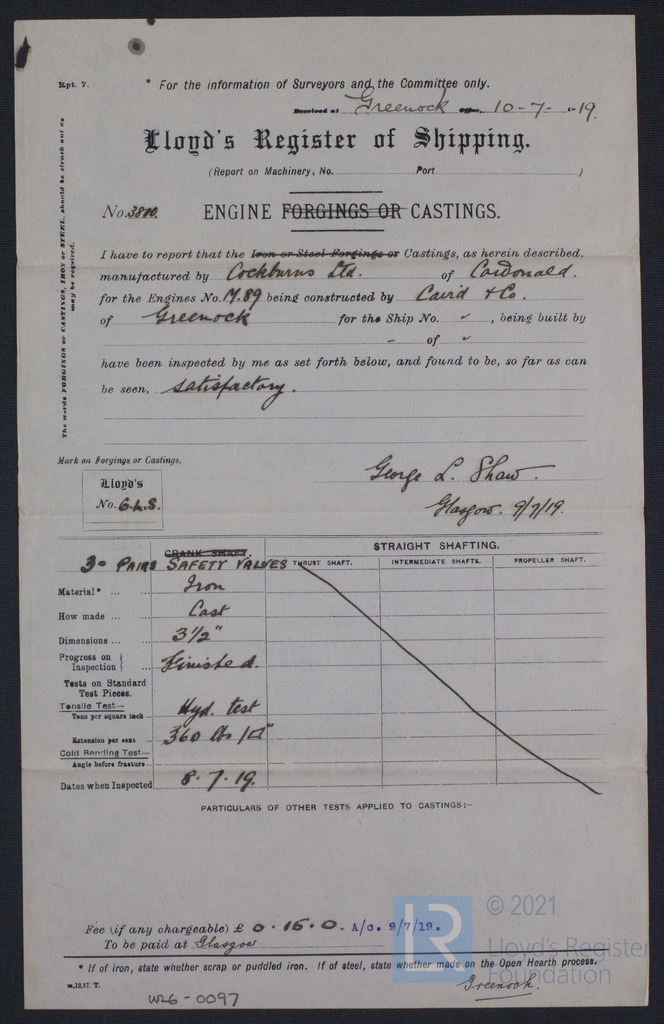 Rpt. 7.
* For the information of Surveyors and the Committee only.
Received at Greenock Office, 10-7-1919.
Lloyd's Register of Shipping.
(Report on Machinery, No. Port )
No. 3800. ENGINE FORGINGS OR CASTINGS.
The words FORGINGS or CASTINGS, IRON or STEEL, should be struck out as
may be required.
I have to report that the Iron or Steel Forgings or Castings, as herein described,
manufactured by Cockburns Ltd. of Cardonald.
for the Engines No. M.89 being constructed by Caird & Co.
of Greenock for the Ship No. , being built by
- of
have been inspected by me as set forth below, and found to be, so far as can
be seen, satisfactory.
Mark on Forgings or Castings.
Lloyd's
No. G.L.S.
George L. Shaw.
Glasgow. 9/7/19.
CRANK SHAFT. STRAIGHT SHAFTING.
3 = PAIRS SAFETY VALVES THRUST SHAFT. INTERMEDIATE SHAFTS. PROPELLER SHAFT.
Material* ... ... Iron
How made ... ... Cast
Dimensions ... ... 3½"
Progress on Inspection } ... Finished.
Tests on Standard
Test Pieces.
Tensile Test— Hyd. test
Tons per square inch
Extension per cent 360 lbs/□"
Cold Bending Test—
Angle before fracture
Dates when Inspected 8.7.19.
PARTICULARS OF OTHER TESTS APPLIED TO CASTINGS:-
Fee (if any chargeable) £ 0.15.0. A/C. 9/7/19.
To be paid at Glasgow
* If of iron, state whether scrap or puddled iron. If of steel, state whether made on the Open Hearth process.
m,12,17. T.
Greenock.
W26-0097
LR
© 2021
Lloyd's Register
Foundation